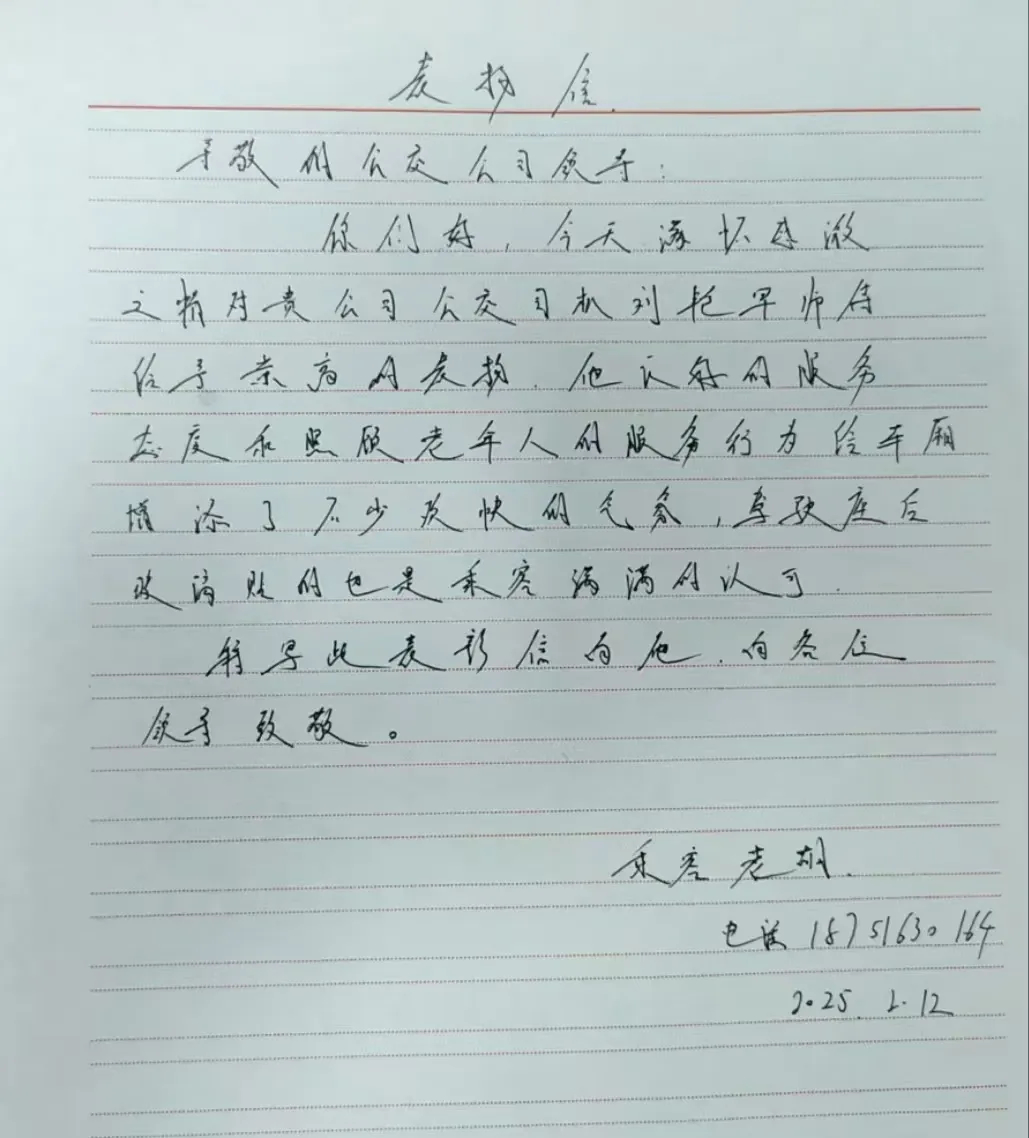 表扬信.
尊敬的公交公司领导:
你们好, 今天满怀感激
之情对贵公司公交司机刘艳军师傅
给予崇高的表扬. 他良好的服务
态度和照顾老年人的服务行为给车厢
增添了不少欢快的气氛, 驾驶座后
玻璃贴的也是乘客满满的认可.
特写此表彰信向他. 向各位
领导致敬。
乘客老胡.
电话 18751630164
2025. 2. 12